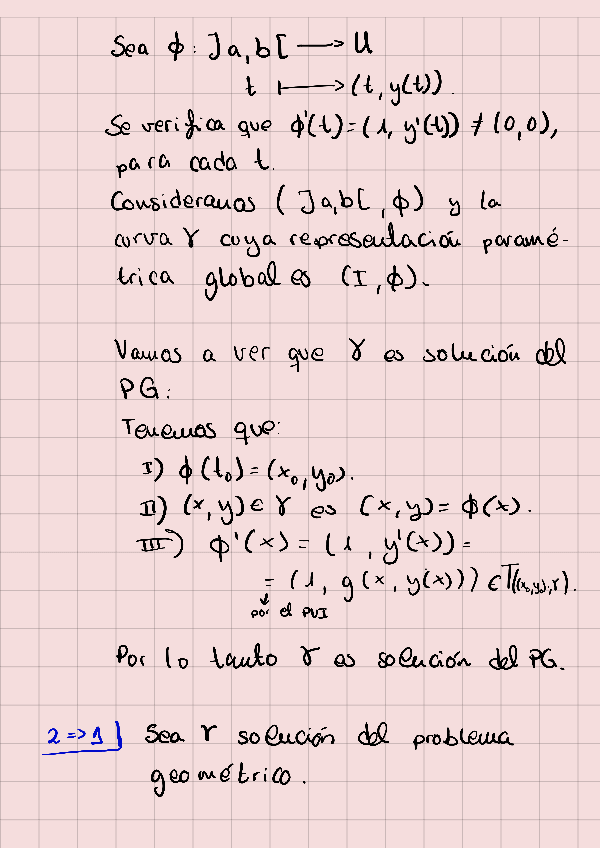 Sea ϕ: ]a,b[ ⟶ U
t ⟼ (t, y(t)).
Se verifica que ϕ'(t)=(1, y'(t)) ≠ (0,0),
para cada t.
Consideramos (]a,b[, ϕ) y la
curva γ cuya representación paramé-
trica global es (I, ϕ).
Vamos a ver que γ es solución del
PG:
Tenemos que:
I) ϕ(t₀)=(x₀,y₀).
II) (x,y)∈γ es (x,y)=ϕ(x).
III) ϕ'(x) = (1, y'(x)) =
= (1, g(x, y(x))) ∈ T((x₀,y₀),γ).
↓
por el PVI
Por lo tanto γ es solución del PG.
2=>1 Sea γ solución del problema
geométrico.